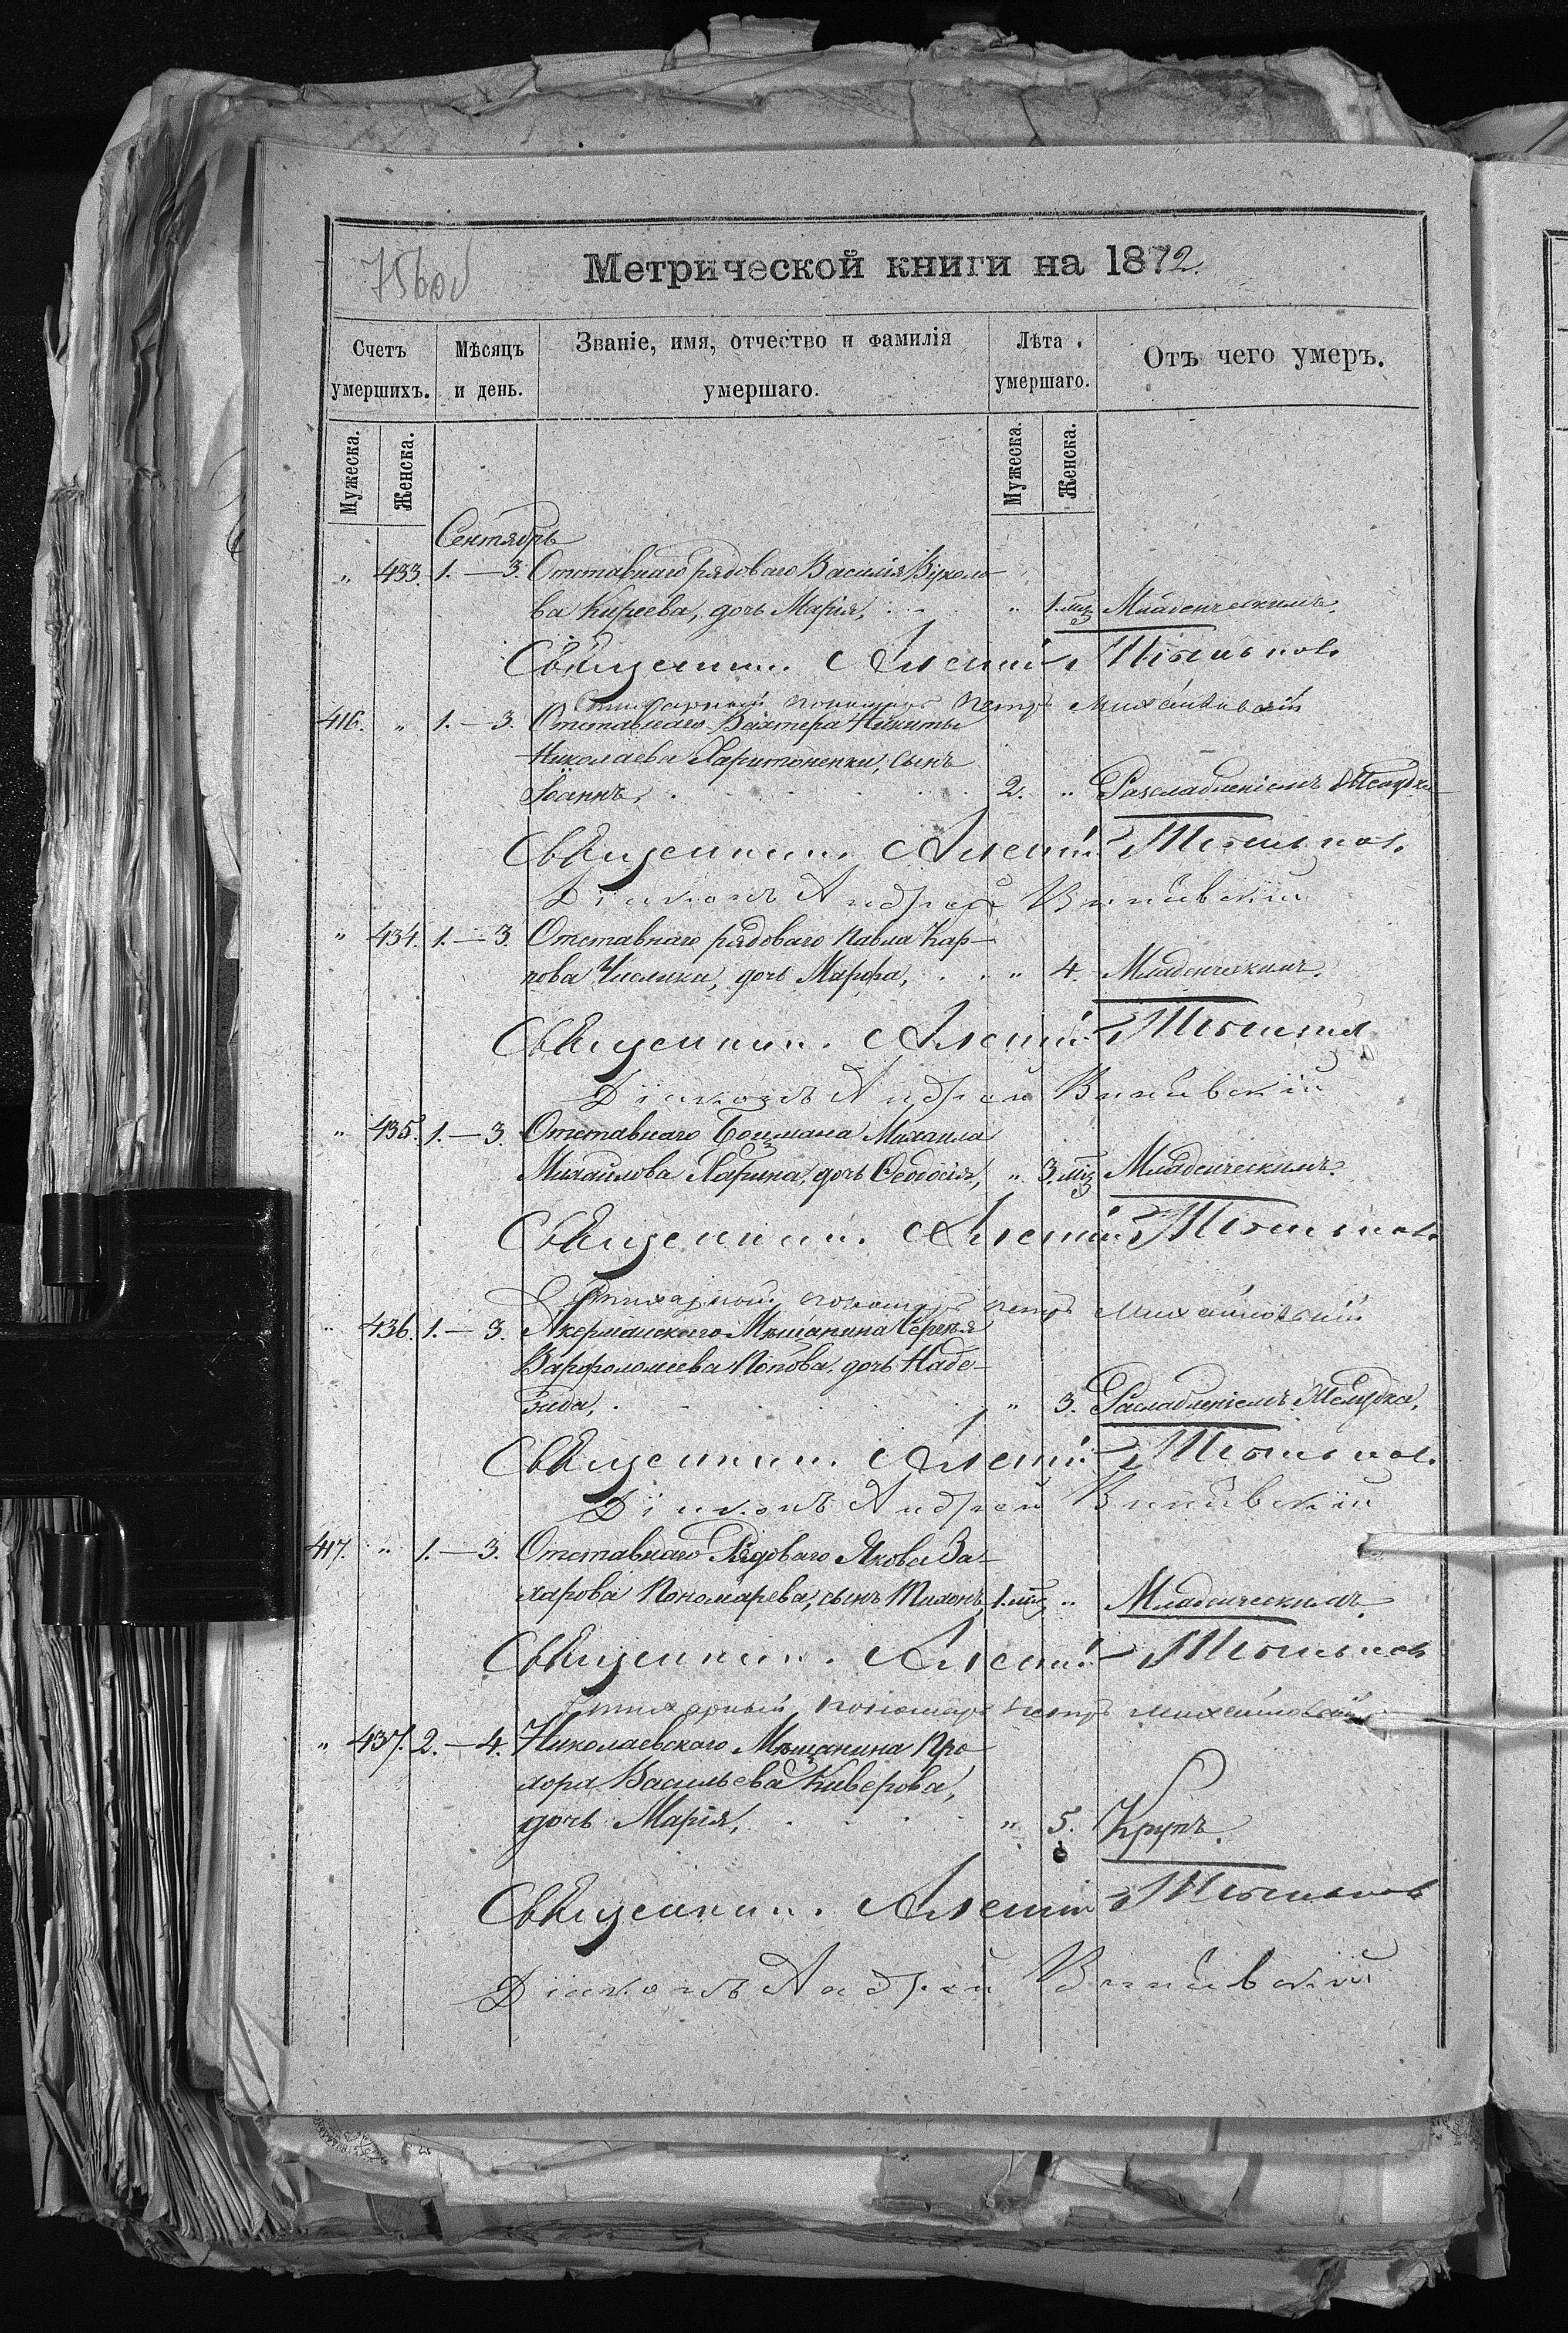 756об
Метрической книги на 1872.
Счетъ умершихъ.
Мѣсяцъ и день.
Званіе, имя, отчество и фамилія умершаго.
Лѣта умершаго.
Отъ чего умеръ.
Мужеска. Женска. Мужеска. Женска.
Сентябрь
„ 433. 1.—3. Отставнаго рядоваго Василія Вуколо-
ва Киреева, дочь Марія, „ 1.мц Младенческимъ.
Священник Алексій
Стихарный пономарь Петръ Михайловскій
416. „ 1.—3. Отставнаго Вахтера Никиты
Николаева Харитоненки, сынъ
Іоаннъ, 2. „ Разслабленіемъ Желудка
Священник Алексій
Діаконъ Андрей
„ 434. 1.—3. Отставнаго рядоваго Павла Кар-
пова Числика, дочь Марфа, „ 4. Младенческимъ.
Священник Алексій
Діаконъ Андрей
„ 435. 1.—3. Отставнаго Боцмана Михаила
Михайлова Ларина, дочь Ѳеодосія, „ 3.мц Младенческимъ.
Священник Алексій
Стихарный пономарь Петръ Михайловскій
„ 436. 1.—3. Акерманскаго Мѣщанина Сергѣя
Варфоломеева Попова, дочь Наде-
жда, „ 3. Раслабленіемъ Желудка,
Священник Алексій
Діаконъ Андрей
417. „ 1.—3. Отставнаго Рядоваго Якова За-
харова Пономарева, сынъ Тихонъ, 1.мц „ Младенческимъ.
Священник Алексій
Стихарный пономарь Петръ Михайловскій
„ 437. 2.—4. Николаевскаго Мѣщанина Про-
хора Васильева Киверова,
дочь Марія, „ 5. Крупъ.
Священник Алексій
Діаконъ Андрей